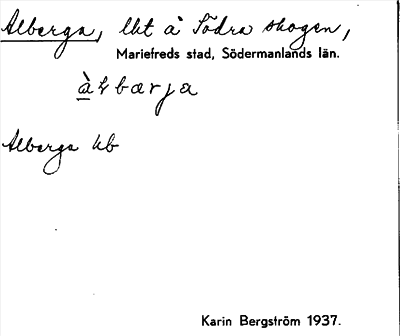 Alberga, lht å Södra skogen,
Mariefreds stad, Södermanlands län.
àɫbærja
Alberga kb
Karin Bergström 1937.